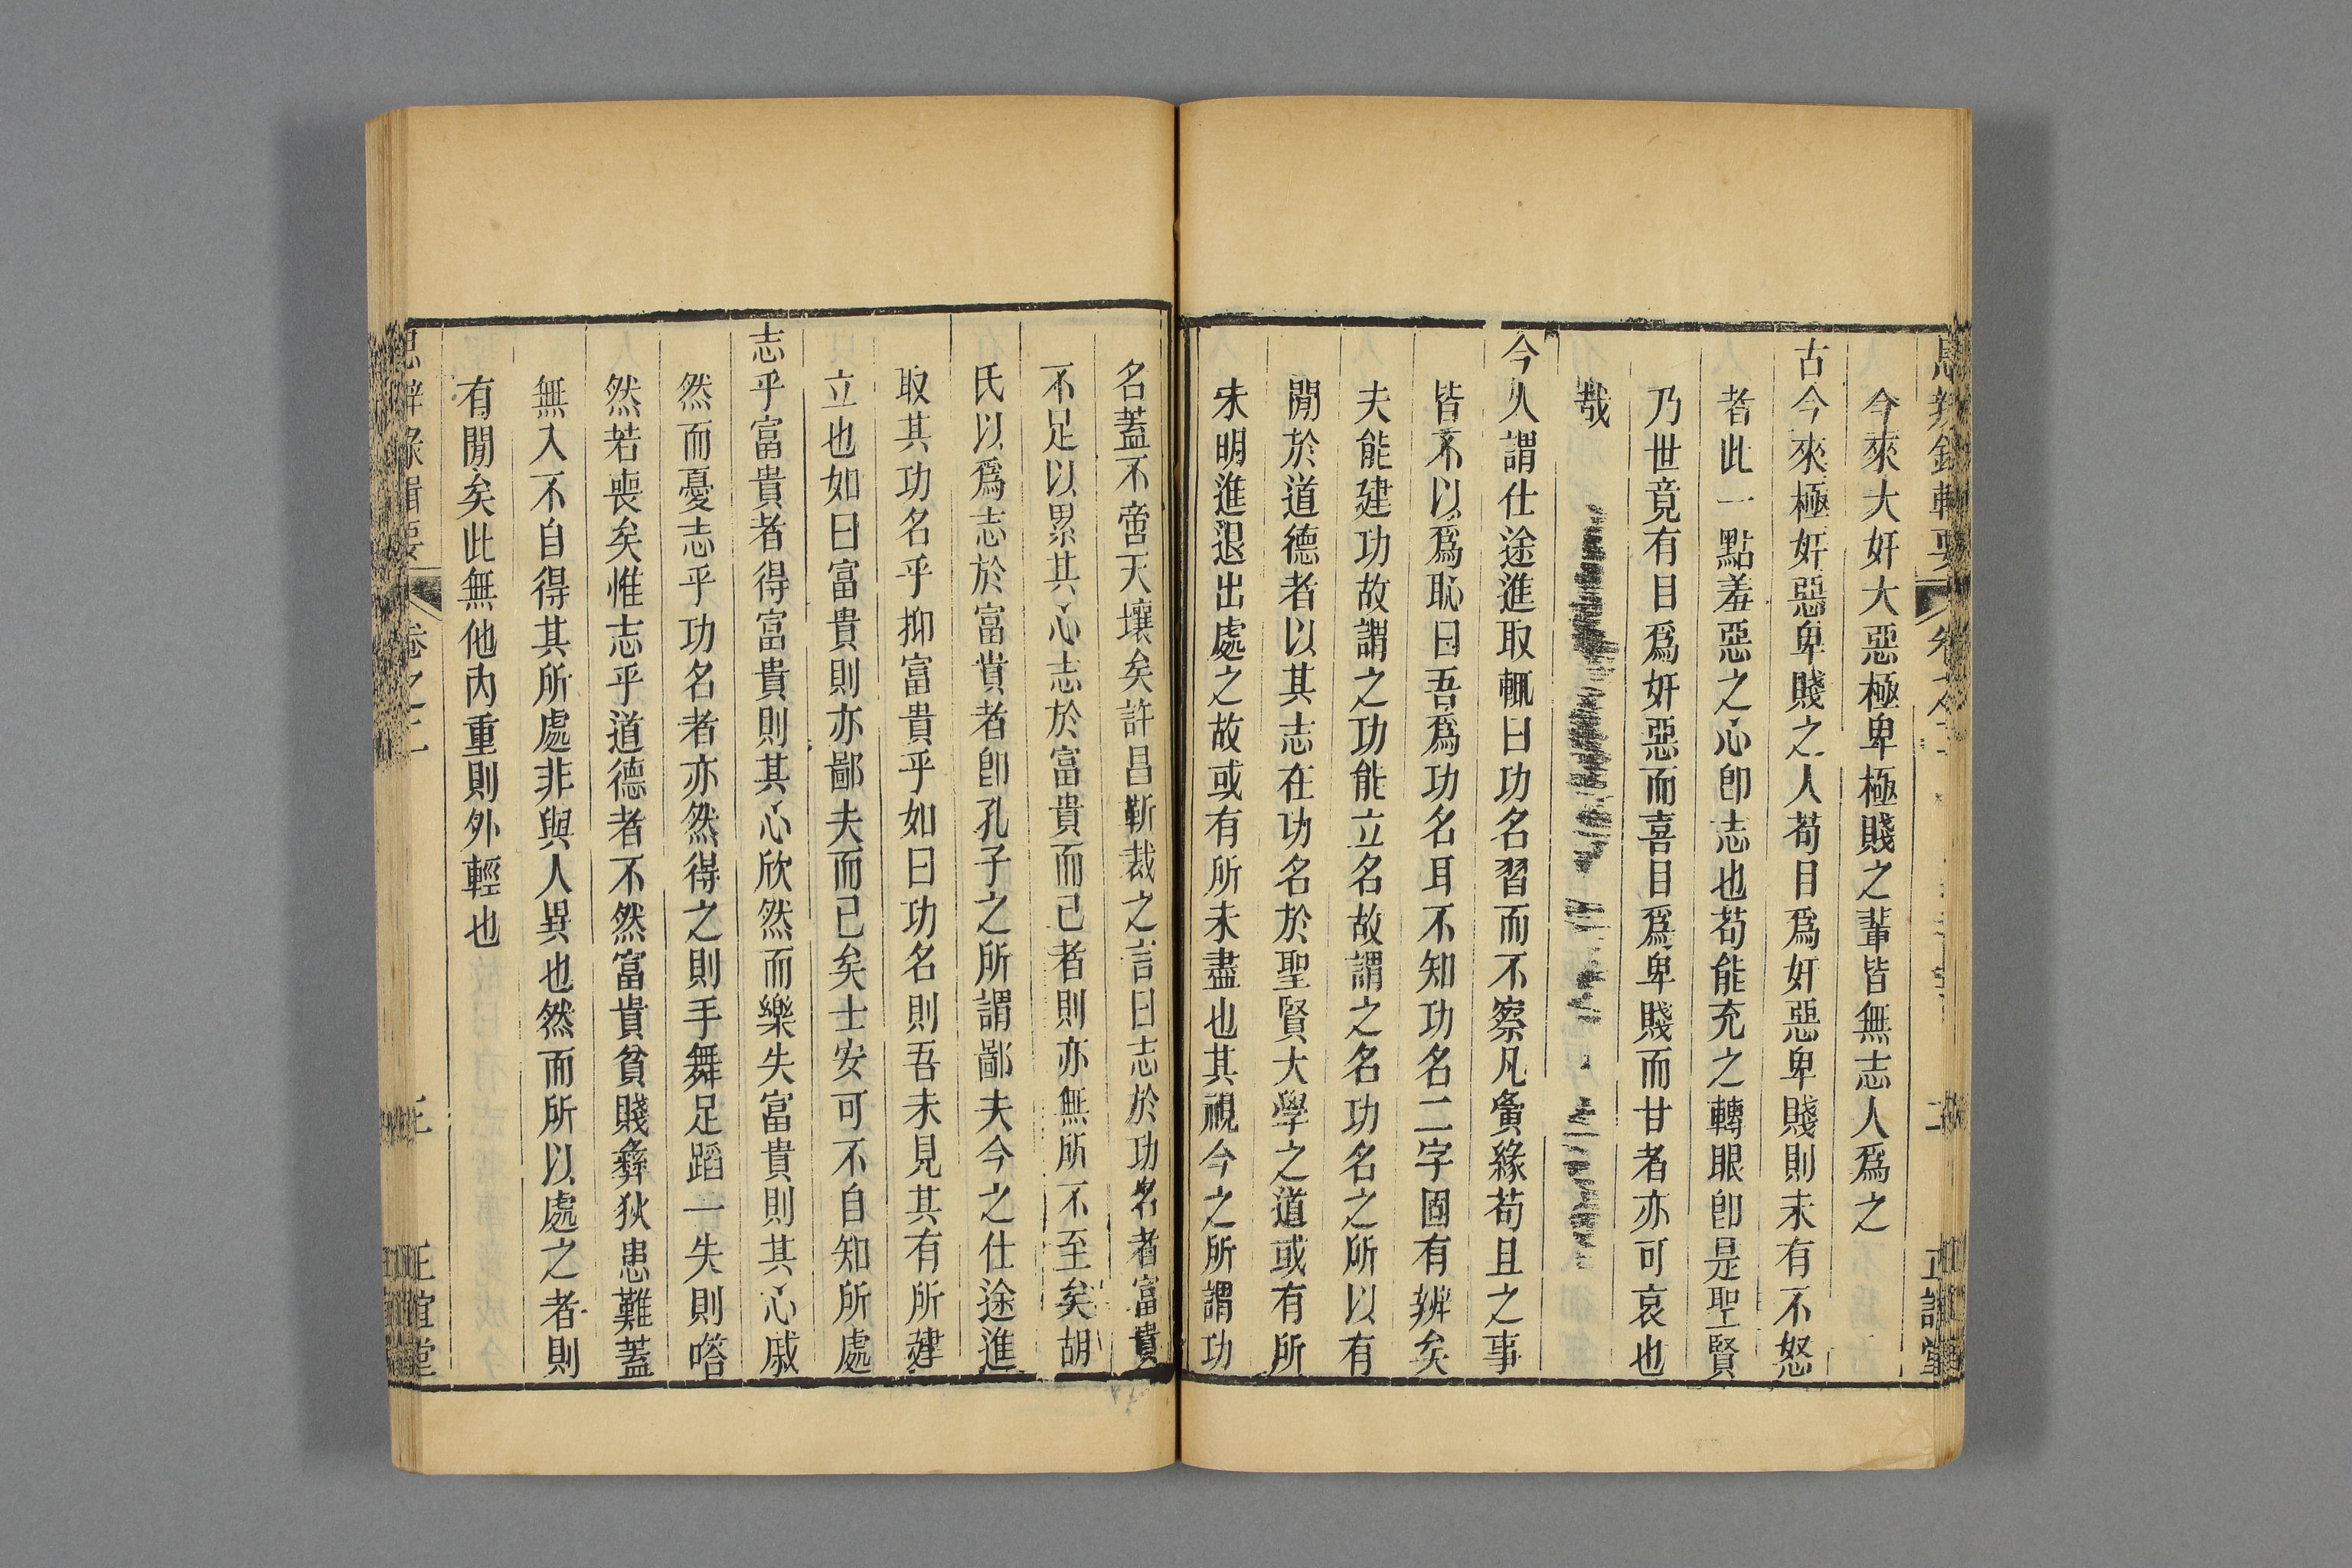 今來大奸大惡極卑極賤之輩皆無志人爲之
古今來極奸惡卑賤之人苟目爲奸惡卑賤則未有不怒
者此一點羞惡之心卽志也苟能充之轉眼卽是聖賢
乃世竟有目爲奸惡而喜目爲卑賤而甘者亦可哀也
哉
今人謂仕途進取輒曰功名習而不察凡夤緣苟且之事
皆不以爲恥曰吾爲功名耳不知功名二字固有辨矣
夫能建功故謂之功能立名故謂之名功名之所以有
閒於道德者以其志在功名於聖賢大學之道或有所
未明進退出處之故或有所未盡也其視今之所謂功
名蓋不啻天壤矣許昌靳裁之言曰志於功名者富貴
不足以累其心志於富貴而已者則亦無所不至矣胡
氏以爲志於富貴者卽孔子之所謂鄙夫今之仕途進
取其功名乎抑富貴乎如曰功名則吾未見其有所建
立也如曰富貴則亦鄙夫而已矣士安可不自知所處
志乎富貴者得富貴則其心欣然而樂失富貴則其心戚
然而憂志乎功名者亦然得之則手舞足蹈一失則嗒
然若喪矣惟志乎道德者不然富貴貧賤彝狄患難蓋
無入不自得其所處非與人異也然而所以處之者則
有閒矣此無他內重則外輕也
思辨錄輯要 卷之二 正誼堂